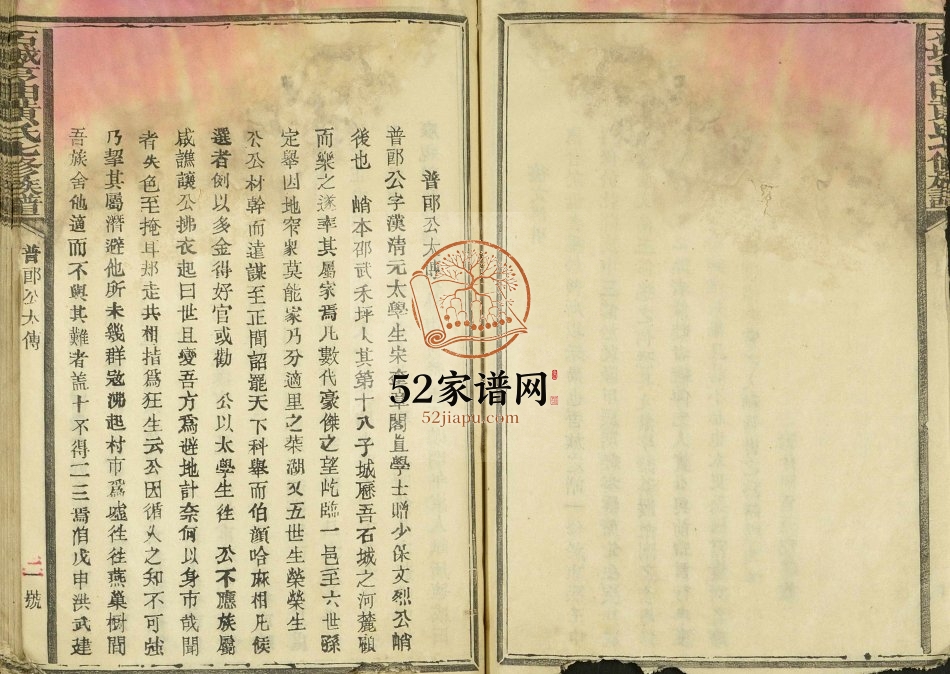 普郎公大傳
普郎公字漢清元太學生宋 閣直學士贈少保文烈公峭
後也 峭本邵武禾坪人其第十八子城歷吾石城之河麓顧
而樂之遂率其屬家焉凡數代豪傑之望屹臨一邑至六世孫
定舉因地窄衆莫能家乃分適里之 湖又五世生榮榮生
公公材幹而遠謀至正間詔罷天下科舉而伯顔哈麻相凡候
選者刻以多金得好官或勸 公以太學生徃 公不應族屬
咸譙讓公拂衣起曰世且變吾方爲避地計奈何以身市 聞
者失色至掩耳却走共相指爲狂生云公因循人之知不可強
乃挈其屬潛避他所未幾群寇沸起村市爲墟徃徃燕巢樹間
吾族舍他適而不與其難者盖十不得二三焉 戊申洪武建
石城 黄氏七修族譜
普郎公大傳
二號
黄氏七修族譜
52家谱网
52jiapu.com